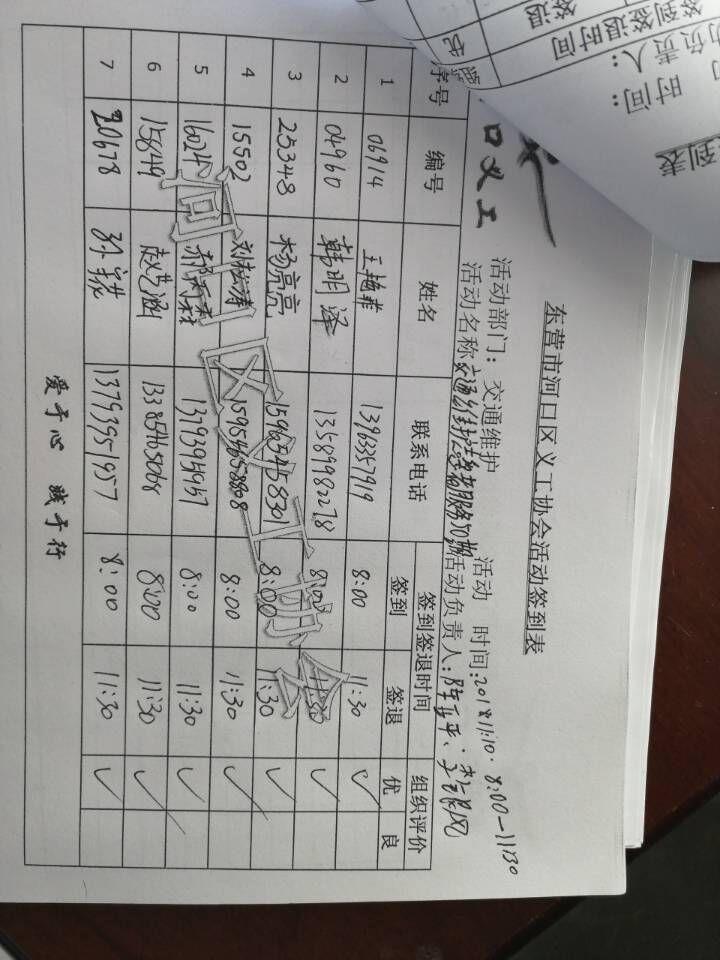 东营市河口区义工协会活动签到表
口义工
活动部门：交通维护 活动 时间：2018.11.10. 8:00—11:30
活动名称 交通维护志愿服务 活动负责人：
序号 编号 姓名 联系电话 签到签退时间 组织评价
签到 签退 优 良
1 06914 王艳菲 13963357919 8:00 11:30 ✓
2 04960 韩明泽 13589982278 8:00 11:30 ✓
3 25348 杨亮亮 15965458301 8:00 11:30 ✓
4 15502 8:00 11:30 ✓
5 16024 8:00 11:30 ✓
6 15849 13385465068 8:00 11:30 ✓
7 20678 13793951957 8:00 11:30 ✓
河口区义工协会
爱于心 践于行
到表
时间：
负责人：
签到签退时间
签退